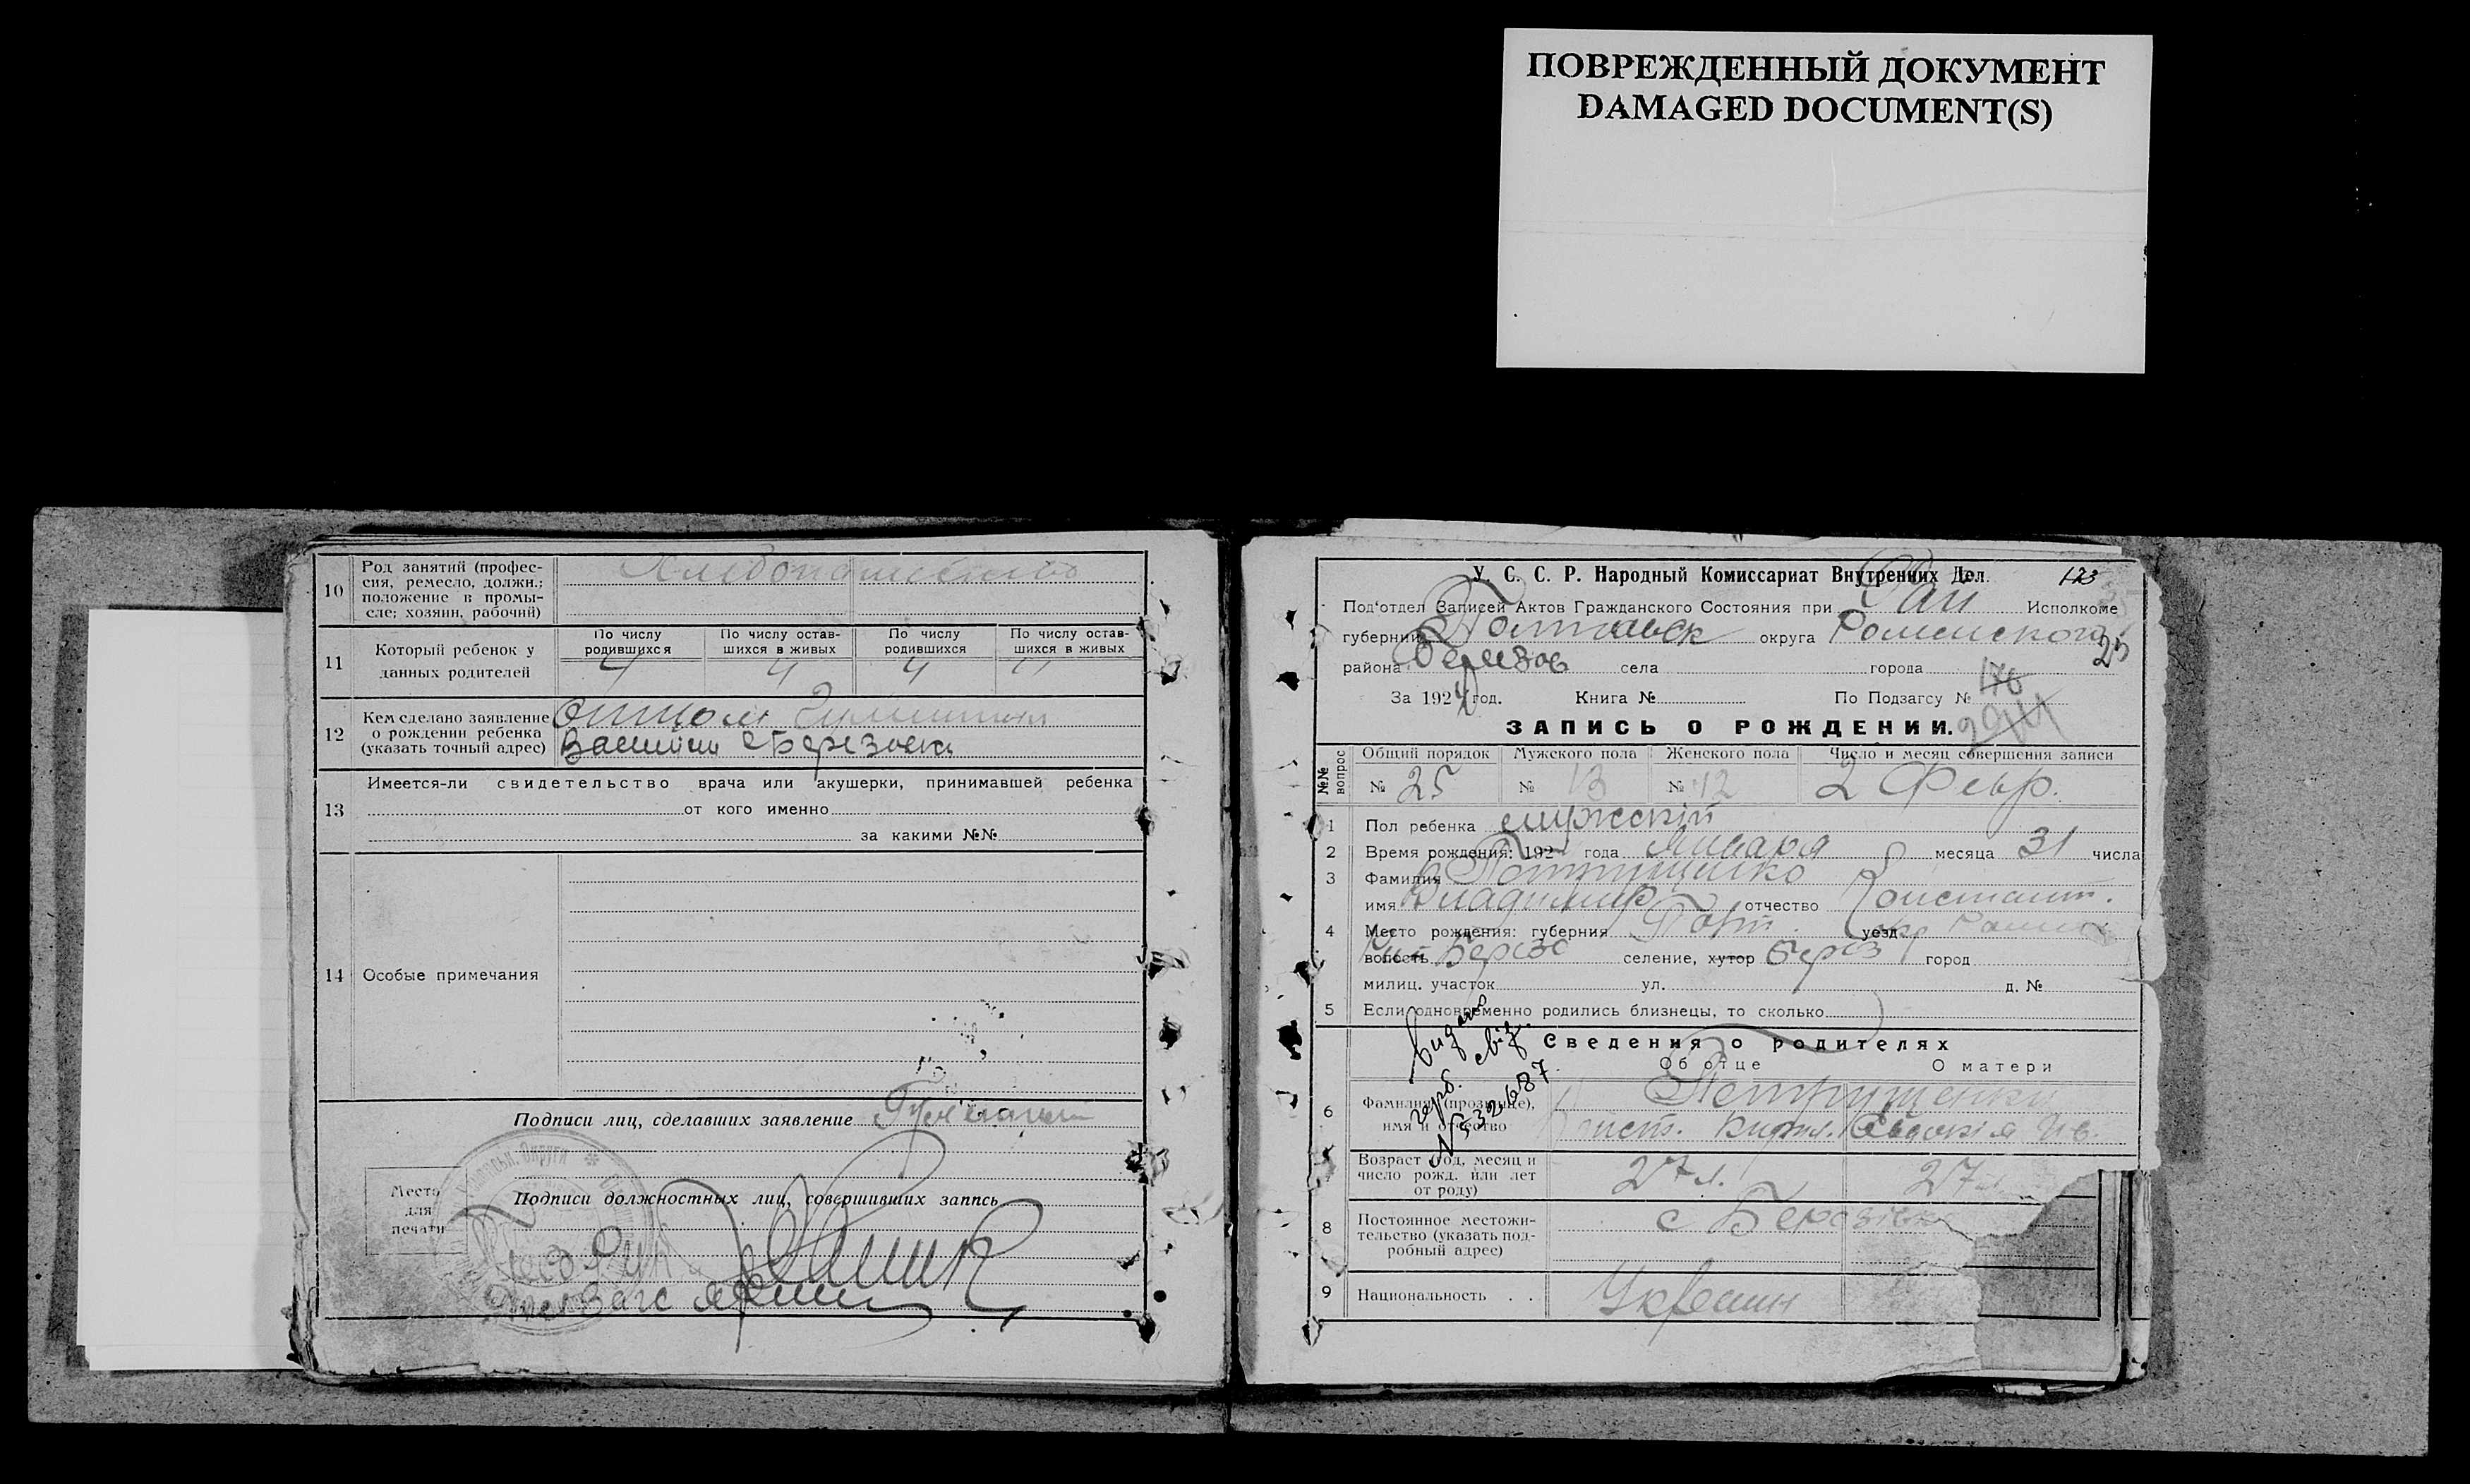 ПОВРЕЖДЕННЫЙ ДОКУМЕНТ
DAMAGED DOCUMENT(S)
10 Род занятий (профес-
сия, ремесло, должн.;
положение в промы-
сле; хозяин, рабочий)
11 Который ребенок у
данных родителей
По числу
родившихся
4
По числу остав-
шихся в живых
4
По числу
родившихся
4
По числу остав-
шихся в живых
12 Кем сделано заявление
о рождении ребенка
(указать точный адрес)
отцом
13 Имеется-ли свидетельство врача или акушерки, принимавшей ребенка
от кого именно
за какими №№
14 Особые примечания
Подписи лиц, сделавших заявление
Место
для
печати
Подписи должностных лиц, совершивших запись
У. С. С. Р. Народный Комиссариат Внутренних Дел.
123
Под'отдел Записей Актов Гражданского Состояния при Рай Исполкоме
губернии Полтавск округа Роменского
25
района Березов села города
За 1924 год. Книга № По Подзагсу № 176
ЗАПИСЬ О РОЖДЕНИИ.
№№ вопрос
Общий порядок Мужского пола Женского пола Число и месяц совершения записи
№ 25 № 13 № 12 2 Февр.
1 Пол ребенка мужский
2 Время рождения: 192 года Января месяца 31 числа
3 Фамилия Петрущенко
имя Владимир отчество Констант.
4 Место рождения: губерния Полт. уезд
волость Берез селение, хутор Берез город
милиц. участок ул. д. №
5 Если одновременно родились близнецы, то сколько
Сведения о родителях
Об отце О матери
6 Фамилия (прозвище),
имя и отчество
Петрущенки
Конст. Кирил. Евдокия Ив.
Возраст (год, месяц и
число рожд. или лет
от роду)
27 л. 27
8 Постоянное местожи-
тельство (указать под-
робный адрес)
с Березівка
9 Национальность . .
Украин
Видано
свід.
герб.